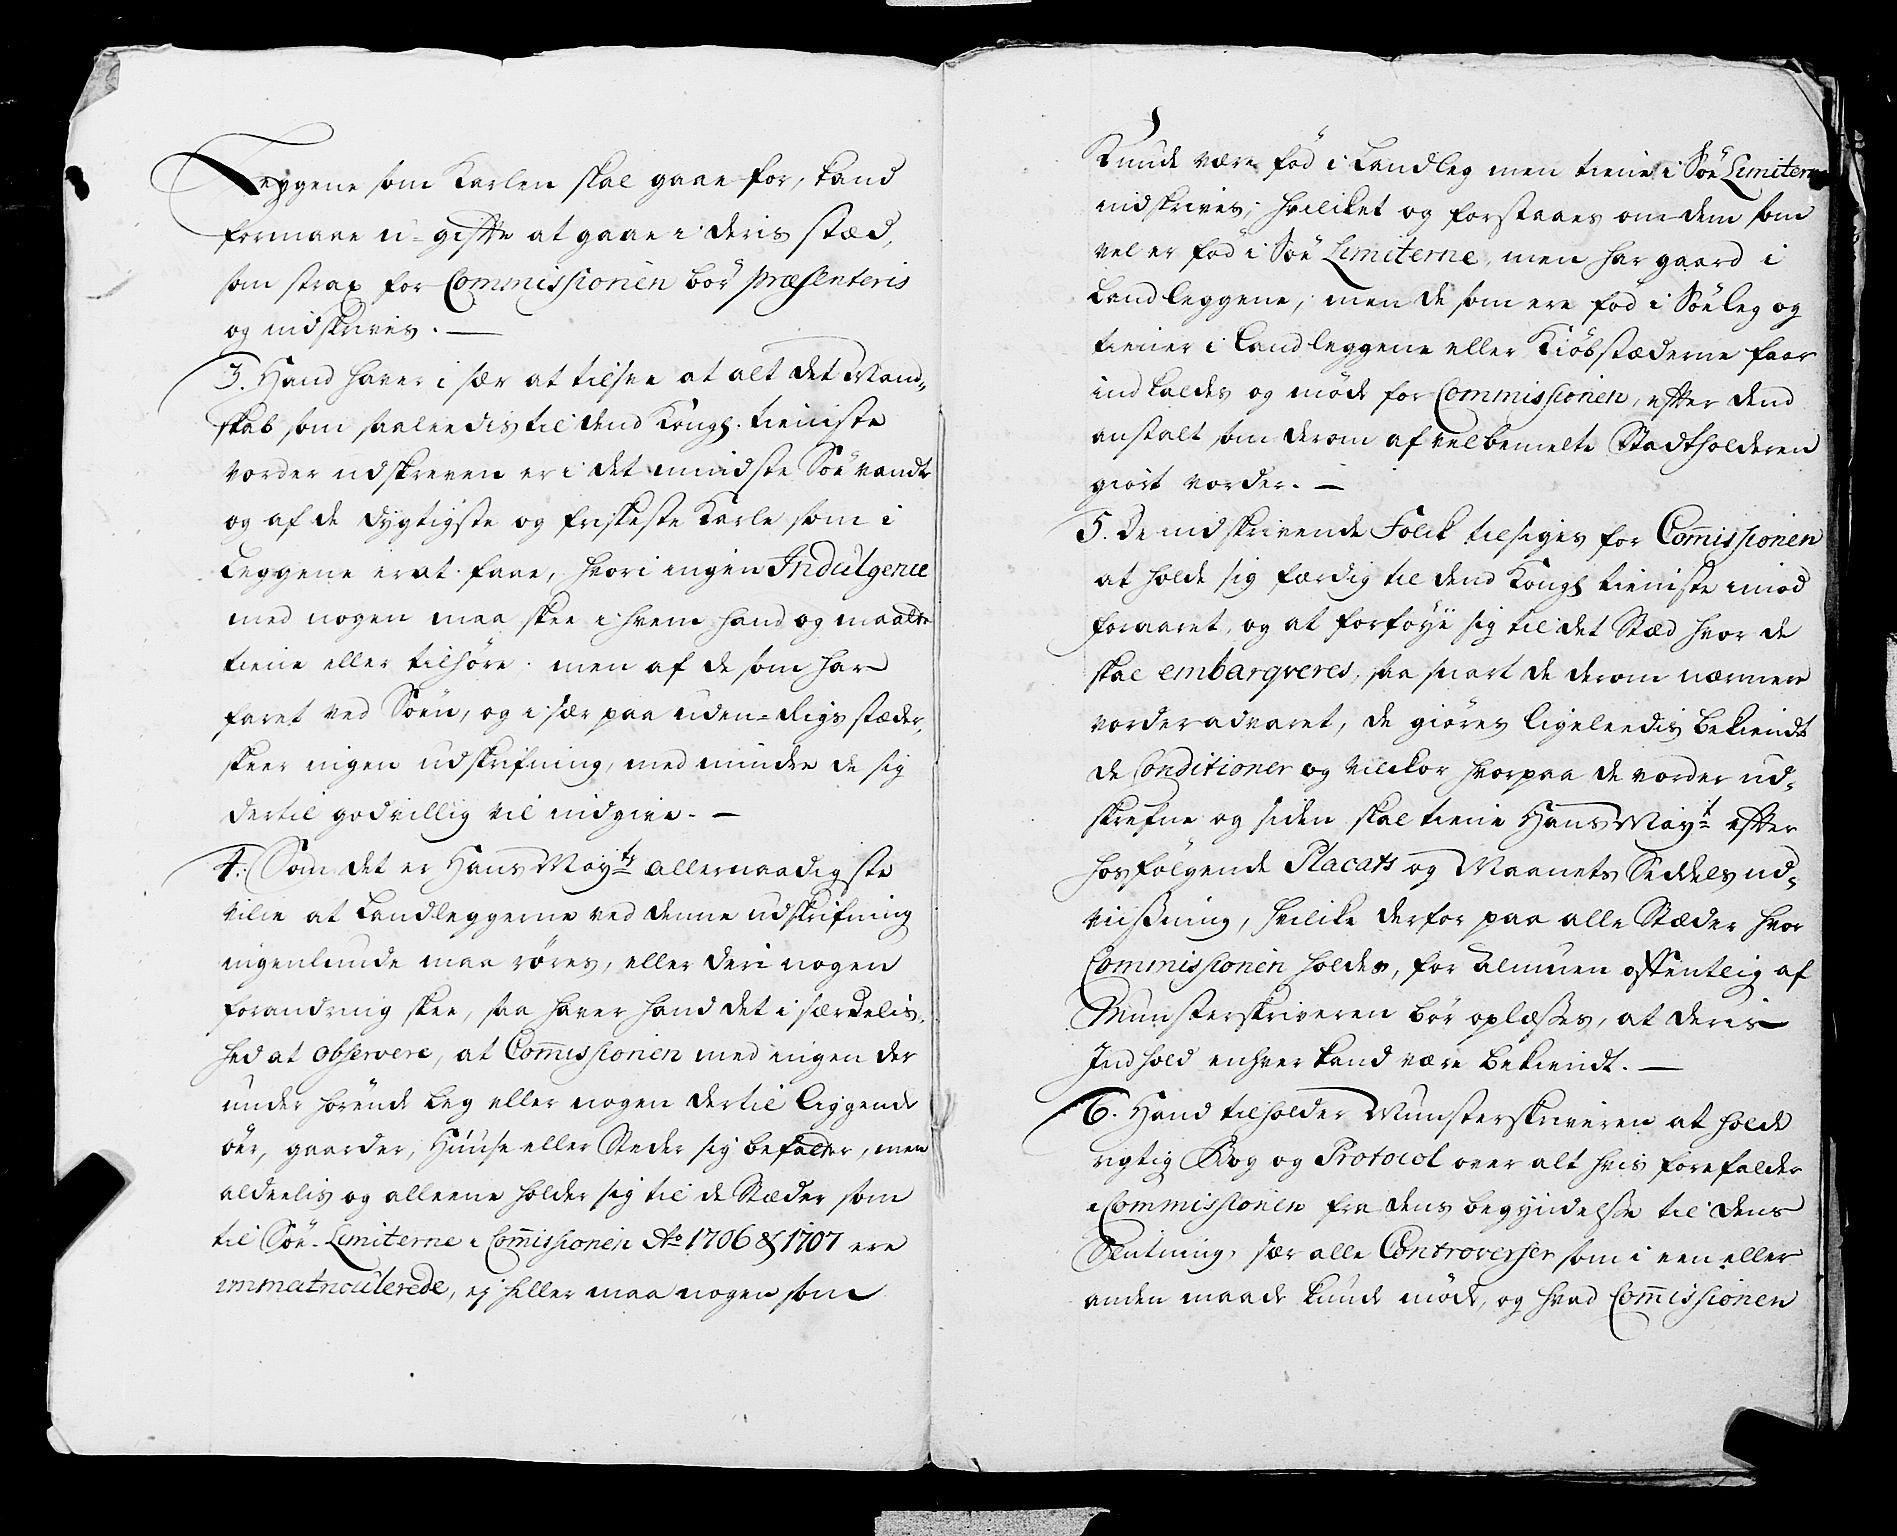 Leggene som Karlen skal gaae for, kand
formaae u-gifte at gaae i deris stæd,
som strax for Commissionen bör præsenteris
og indskrives. —
3. Hand haver i sær at tilsee at alt det Mand-
skab som saaleedis til dend Kongl. tieniste
vorder udskreven er i det mindste Söe vandte
og af de dygtigste og friskeste Karle som i
Leggene er at faae, hvori ingen Indulgence
med nogen maa skee i hvem hand og maatte
tiene eller tilhöre. men af de som har
faret ved Söen, og i sær paa uden-Rigs stæder,
skeer ingen udskrifning, med mindre de sig
dertil godvillig vil indgive. —
4. Som det er Hans Mayts allernaadigste
villie at Landleggerne ved denne udskrifning
ingenlunde maa röres, eller deri nogen
forandring skee, saa haver hand det i særdelis-
hed at observere, at Commissionen med ingen der
under hörende Leg eller nogen dertil liggende
öer, gaarder, Huuse eller Steder sig befatter, men
aldeelis og alleene holder sig til de Stæder som
til Söe-Limiterne i Commissionen Ao 1706 & 1707 ere
immatriculerede, ej heller maa nogen som
Kunde være föd i Landleg men tiene i Söe Limiterne
indskrives, hvilket og forstaaes om dem som
vel er föd i Söe Limiterne, men har gaard i
Landleggene, men de som ere föd i Söeleg og
tiener i Landleggene eller Kiöbstæderne faar
indkaldes og möde for Commissionen, efter dend
anstalt som derom af velbemelte Stadtholderen
giort vorder. —
5. De indskrivende Folck tilsiges for Commissionen
at holde sig færdig til dend Kongl tieniste imod
foraaret, og at forföye sig til det Stæd hvor de
skal embarqveres, saa snart de derom nærmere
vorder advaret, de giöres ligeleedis bekiendt
de Conditioner og Vilckor hvorpaa de vorder ud-
skrefne og siden skal tiene Hans Mayt efter
hosfölgende Placats og Maanets Seddels ud-
viisning, hvilcke derfor paa alle Stæder hvor
Commissionen holdes, for Almuen offentlig af
Munsterskriveren bör oplæses, at deris
Indhold enhver kand være bekiendt. —
6. Hand tilholder Munsterskriveren at holde
rigtig Bog og Protocol over alt hvis forefalder
i Commissionen fra dens begyndelse til dens
Slutning, sær alle Controverser som i een eller
anden maade kunde möde, og hvad Commissionen